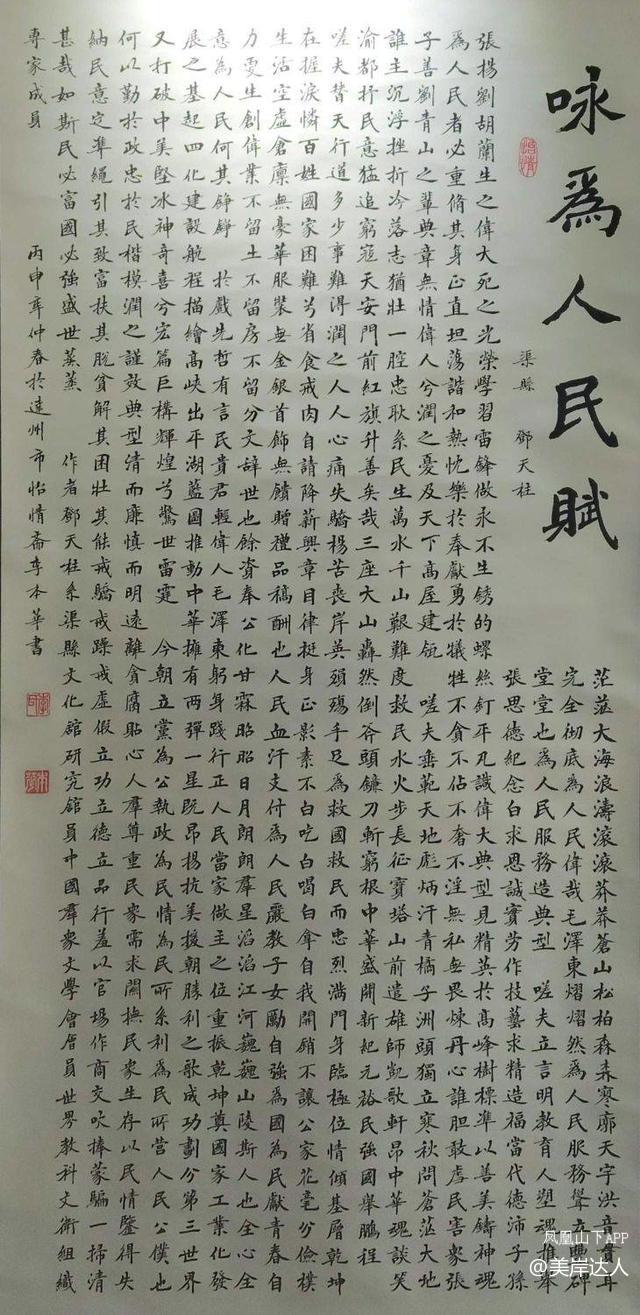 咏爲人民賦
渠縣 鄧天柱
茫茫大海浪濤滾滾莽莽蒼山松柏森森寥廓天宇洪音貫耳
完全彻底爲人民偉哉毛澤東熠熠然爲人民服務聲立豐碑
堂堂也爲人民服務造典型 嗟夫立言明教育人塑魂推奉
張思德紀念白求恩誠實劳作技藝求精造福當代德沛子孫
張揚劉胡蘭生之偉大死之光榮學習雷鋒做永不生銹的螺絲釘平凡識偉大典型見精英於高峰樹標準以善美鑄神魂
爲人民者必重脩其身正直坦蕩諧和熱忱樂於奉獻勇於犧牲不貪不佔不奢不淫無私無畏煉丹心誰胆敢虐民害衆張
子善劉青山之輩典章無情偉人兮潤之憂及天下高屋建瓴 嗟夫垂範天地彪炳汗青橘子洲頭獨立寒秋問蒼茫大地
誰主沉浮挫折冷落志猶壯一腔忠耿系民生萬水千山艱難度救民水火步長征寶塔山前遣雄師凱歌軒昂中華魂談笑
渝都抒民意猛追窮寇天安門前紅旗升善矣哉三座大山轟然倒斧頭鐮刀斬窮根中華盛開新紀元裕民強國舉鵬程
嗟夫替天行道多少事難得潤之人人心痛失驕楊苦喪岸英頭殤手足爲救國救民而忠烈满門身臨極位情傾基層乾坤
在握淚憐百姓國家困難兮省食戒肉自請降薪興章目律挺身正影素不白吃白喝白拿自我開銷不讓公家花毫分儉樸
生活空虛倉廪無豪華服裝無金銀首飾無饋贈禮品稿酬也人民血汗支付爲人民嚴教子女勵自強爲國爲民獻青春自
力更生創偉業不留土不留房不留分文辭世也餘資奉公化甘霖昭昭日月朗朗羣星滔滔江河巍巍山陵斯人也全心全
意為人民何其錚錚 於戲先哲有言民貴君輕偉人毛澤東躬身踐行正人民當家做主之位重振乾坤奠國家工業化發
展之基起四化建設航程描繪高峽出平湖藍圖推動中華擁有两彈一星既昂揚抗美援朝勝利之歌成功劃分第三世界
又打破中美堅冰神奇喜兮宏篇巨構輝煌兮驚世雷霆 今朝立黨為公執政為民情為民所系利爲民所营人民公僕也
何以勤於政忠於民楷模潤之謹效典型清而廉慎而明遠離貪腐貼心人羣尊重民衆需求關撫民衆生存以民情鑒得失
納民意定準繩引其致富扶其脱貧解其困壮其能戒驕戒躁戒虛假立功立德立品行羞以官場作商交吹捧蒙騙一掃清
甚哉如斯民必富國必強盛世蒸蒸 作者鄧天柱系渠縣文化舘研究舘員中國羣衆文學會會員世界教科文衛組織
專家成員 丙申年仲春於達州市怡情斋李本華書
凤凰山下APP
@美岸达人